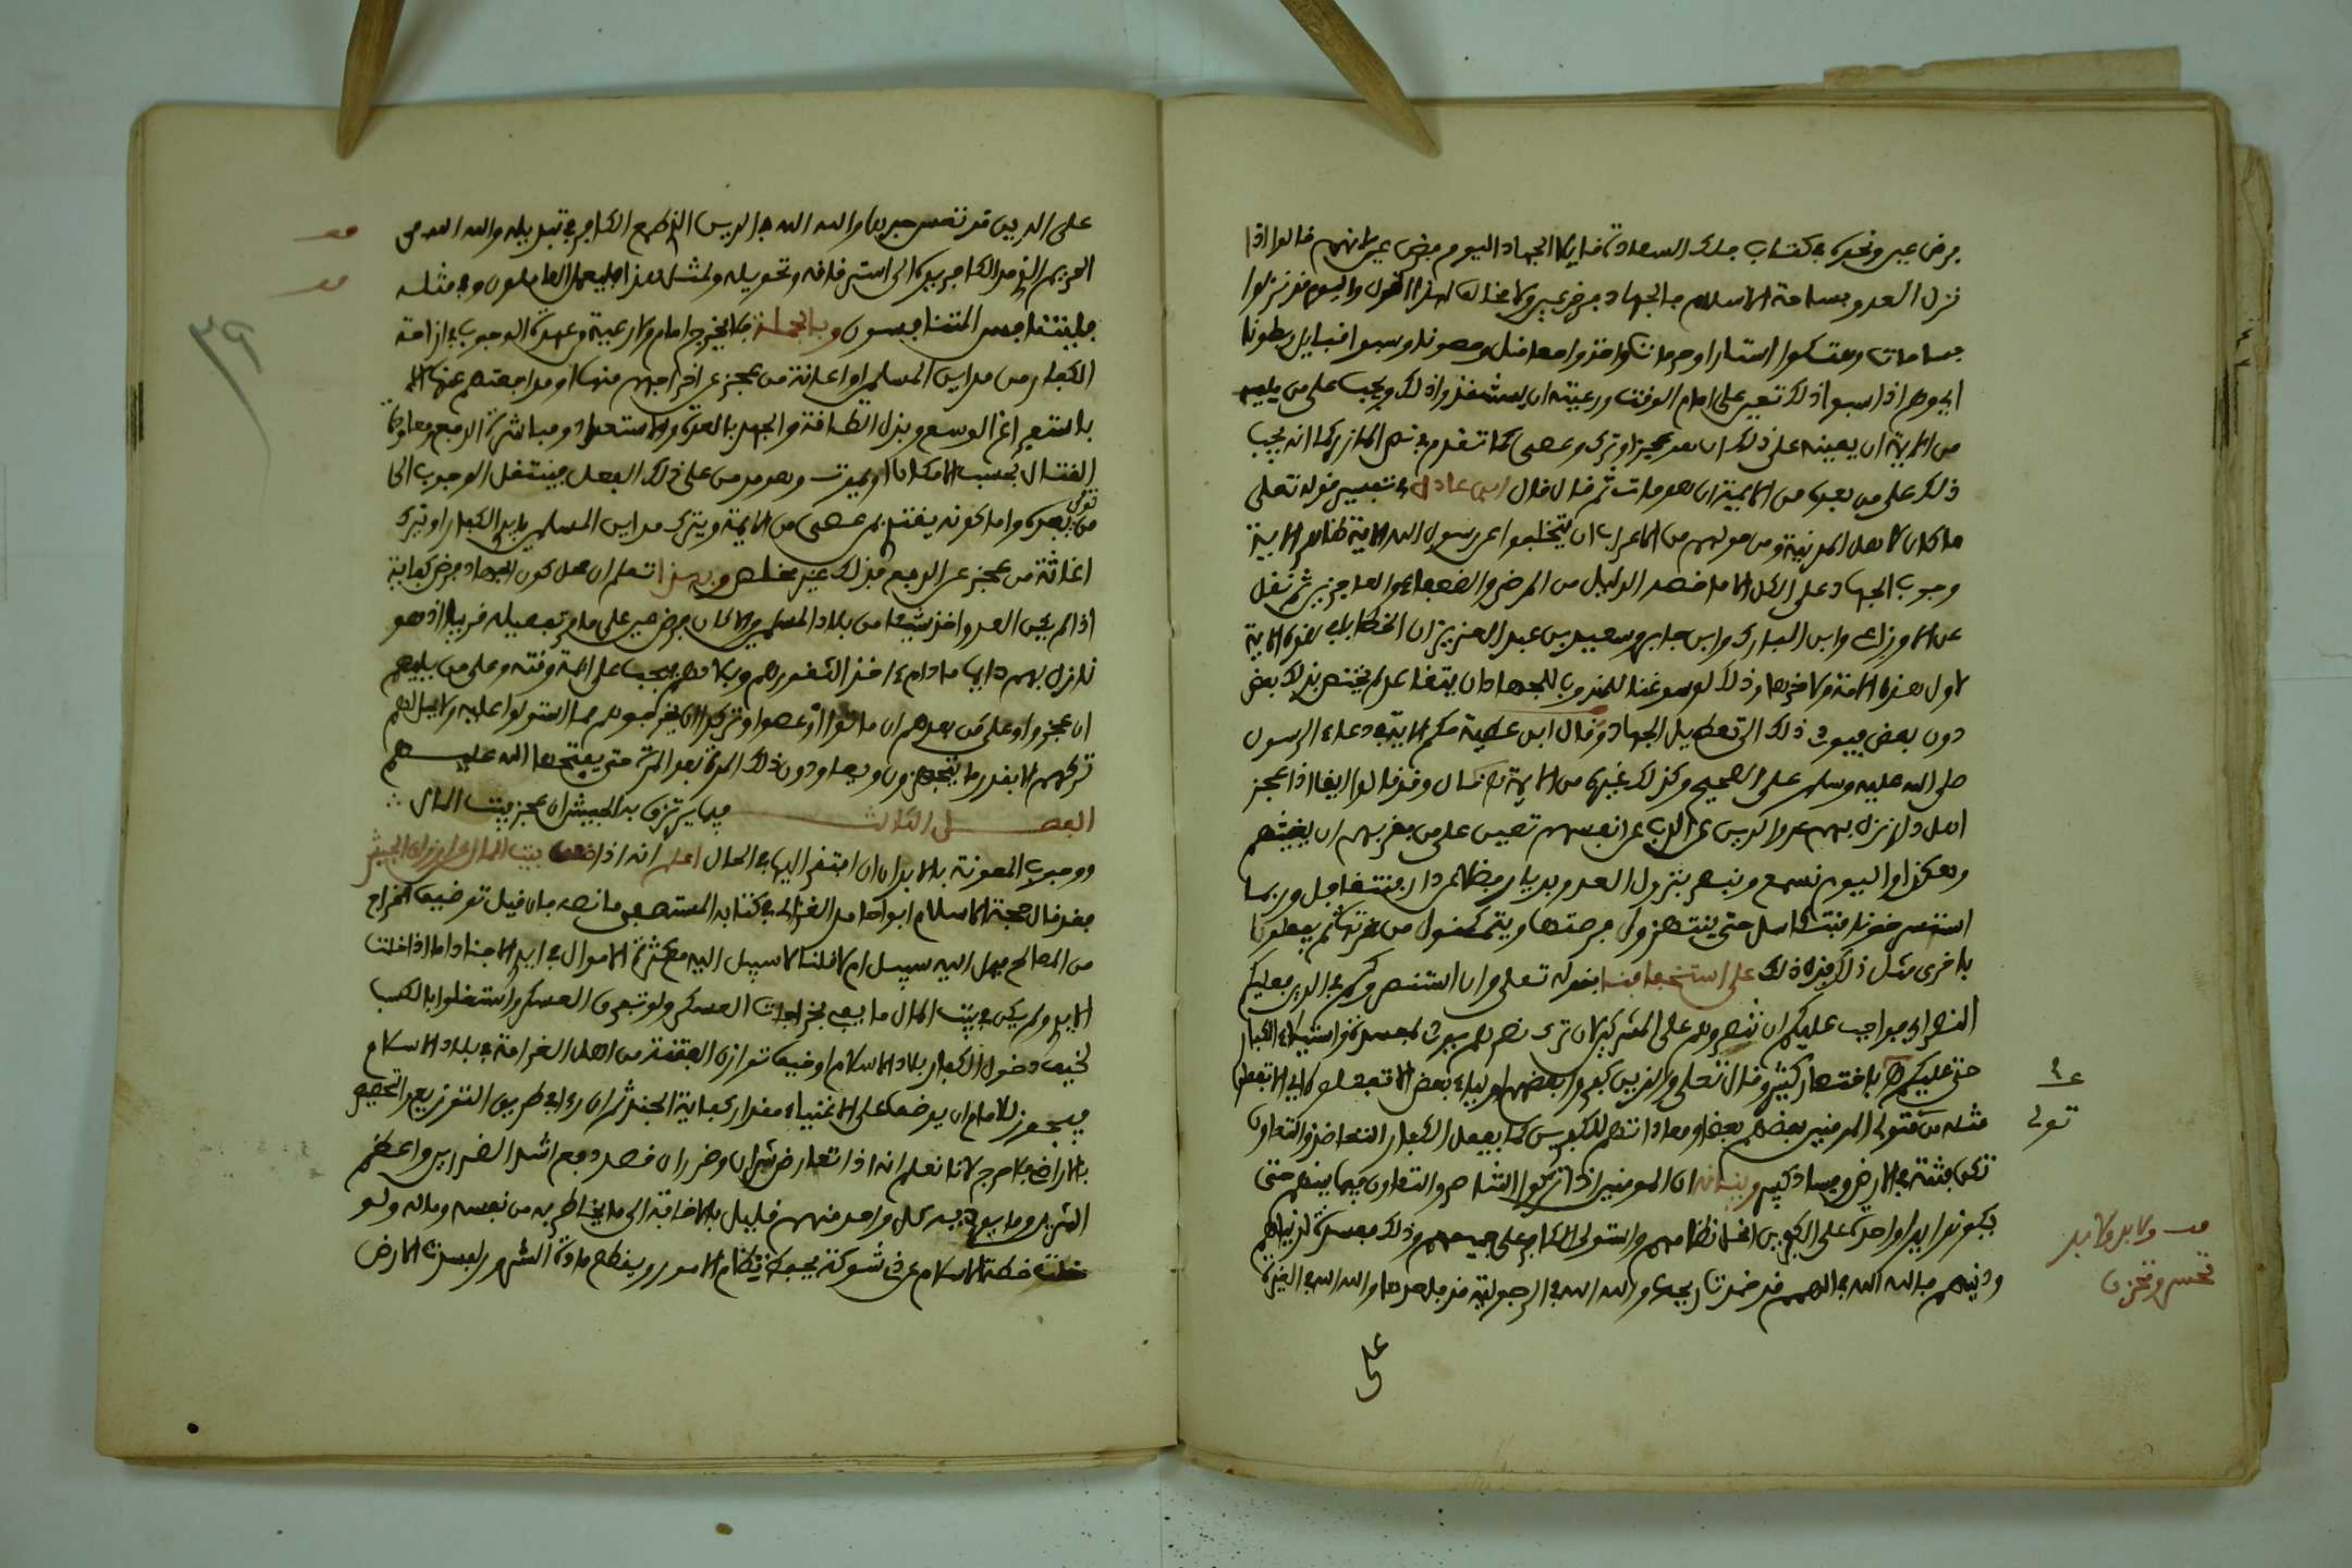 فرض عين ونحوه في كتاب فلك السعادة قايلا الجهاد اليوم فرض عين لانهم قالوا اذا
نزل العدو بساحة الاسلام فالجهاد فرض عين ولا مخالف لهذا القول واليوم قد نزلوا
بساحات وهتكوا استارا وحرمات واخذوا معاقل وحصونا وسبوا قبايل وبطونا
اي وهم اذا سبوا ذلك تعين على امام الوقت ورعيته ان يستنفذوا ذلك ويجب على من يليهم
من الايمة ان يعينه على ذلك ان هو عجز او ترك وعصى كما تقدم في نص المازري كما انه يجب
ذلك على من بعده من الايمة ان هو مات ثم قال قال ابن عادل في تفسير قوله تعلى
ما كان لاهل المدينة ومن حولهم من الاعراب ان يتخلفوا عن رسول الله الاية ظاهر الاية
وجوب الجهاد على الكل الا ما خصه الدليل من المرضى والضعفاء والعاجزين ثم نقل
عن الاوزاعي وابن المبارك وابن جابر وسعيد بن عبد العزيز ان الخطاب في هذه الاية
لاول هذه الامة ولاخرها وذلك لو سوغنا للمندوب للجهاد ان يتقاعد لم يختص بذلك بعض
دون بعض فيودي ذلك الى تعطيل الجهاد وقال ابن عطية حكم الاية في دعاء الرسول
صلى الله عليه وسلم على الصحيح وكذلك غيره من الايمة قال وقد قالوا ايضا اذا عجز
اهل ولا نزل بهم عدو الدين عن الذب عن انفسهم تعين على من يقربهم ان يغيثهم
وهكذا واليوم نسمع ونبصر بنزول العدو بديار فيظلم دار فنتغافل وربما
استنصرخونا فنتكاسل حتى ينتهزوا فرصتها ويتمكنوا من عزتها ثم يفعلون
باخرى مثل ذلك فدل ذلك على استخفافنا بقوله تعلى وان استنصروكم في الدين فعليكم
النصر اي فواجب عليكم ان تنصروهم على المشركين لان ترك نصرهم يودي لمفسدة واستيلاء الكفار
حتى عليكم باختصار كثير وقال تعلى والذين كفروا بعضهم اولياء بعض الا تفعلوه اي الا تفعلوا
مثله من تولي المومنين بعضهم بعضا ومعاداتهم للكافرين كما يفعل الكفار التعاضد والتعاون
تكن فتنة في الارض وفساد كبير وبيانه ان المومنين اذا تركوا التناصر والتعاون فيما بينهم حتى
يكونوا يدا واحدة على الكافرين اختل نظامهم واستولى الكافر على جميعهم وذلك مفسدة لدنياهم
ودينهم فالله الله في الهمم قد خمدت ريحها والله الله في الرجولية قد ... والله الله في الغيرة
على
ع
تولي
... ولابد ولابد
تحس وتحزن
على الدين قد تنفس حبرها والله الله في الدين الذي طمع الكافر في تبديله والله الله في
الحريم الذي مد الكافر يده الى استرقاقه وتحويله ولمثل هذا فليعمل العاملون وفي مثله
فليتنافس المتنافسون وبالجملة فلا يخرج امام ولا رعية من عهدة الوجوب في ازاحة
الكفار من مداين المسلمين او اعانة من عجز عن اخراجهم منها او مدافعتهم عنها الا
باستفراغ الوسع وبذل الطاقة والجهد بالعدة والاستعداد ومباشرة الدفع ومعاودة
القتال بحسب الامكان او يموت وهو مدمن على ذلك الفعل فينتقل الوجوب الى
من بعده واما كونه يقتدي بمن عصى من الايمة ويترك مداين المسلمين بايدي الكفار او ترك
اغاثة من عجز عن الدفع فذلك غير مخلص وبهذا تعلم ان محل كون الجهاد فرض كفاية
اذا لم يكن العدو اخذ شيئا من بلاد المسلمين والا كان فرض عين على ما مر تفصيله قريبا اذ هو
نازل بهم دايما ما دام اخذ الثغورهم وبلادهم فيجب على ايمة وقته وعلى من يليهم
ان عجزوا وعلى من بعدهم ان ماتوا او عصوا وتركوا ان يخرجوهم مما استولوا عليه ولا يحل لهم
تركهم الا بقدر ما يتجهزون ويعاودون ذلك المرة بعد المرة حتى يفتحها الله عليهم
الفصل الثالث فيما يرتزق به الجيش ان عجز بيت المال
ووجوب المعونة بالابدان ان افتقر اليها في الحال اعلم انه اذا ... بيت المال على ارزاق الجيش
فقد قال حجة الاسلام ابو حامد الغزالي في كتابه المستصفى ما نصه فان قيل توظيف الخراج
من المصالح فهل اليه سبيل ام لا قلنا لا سبيل اليه مع كثرة الاموال في ايدي الاجناد اما اذا خلت
الايدي ولم يكن في بيت المال ما يفي بخراجات العسكر ولو تفرق العسكر واشتغلوا بالكسب
لخيف دخول الكفار بلاد الاسلام او خيف ثوران الفتنة من اهل الغرامة في بلاد الاسلام
فيجوز للامام ان يوظف على الاغنياء مقدار كفاية الجند ثم ان راى في طريق التوزيع التخصيص
بالاراضي فلا حرج لانا نعلم انه اذا تعارض شران وضرران قصد دفع اشد الضررين واعظم
الشرين وما يوديه كل واحد منهم قليل بالاضافة الى ما يخاطر به من نفسه وماله ولو
خلت خطة الاسلام عن ذي شوكة يحفظ نظام الامور ويقطع مادة الشرور لفسدت الارض
تولي
٣٩